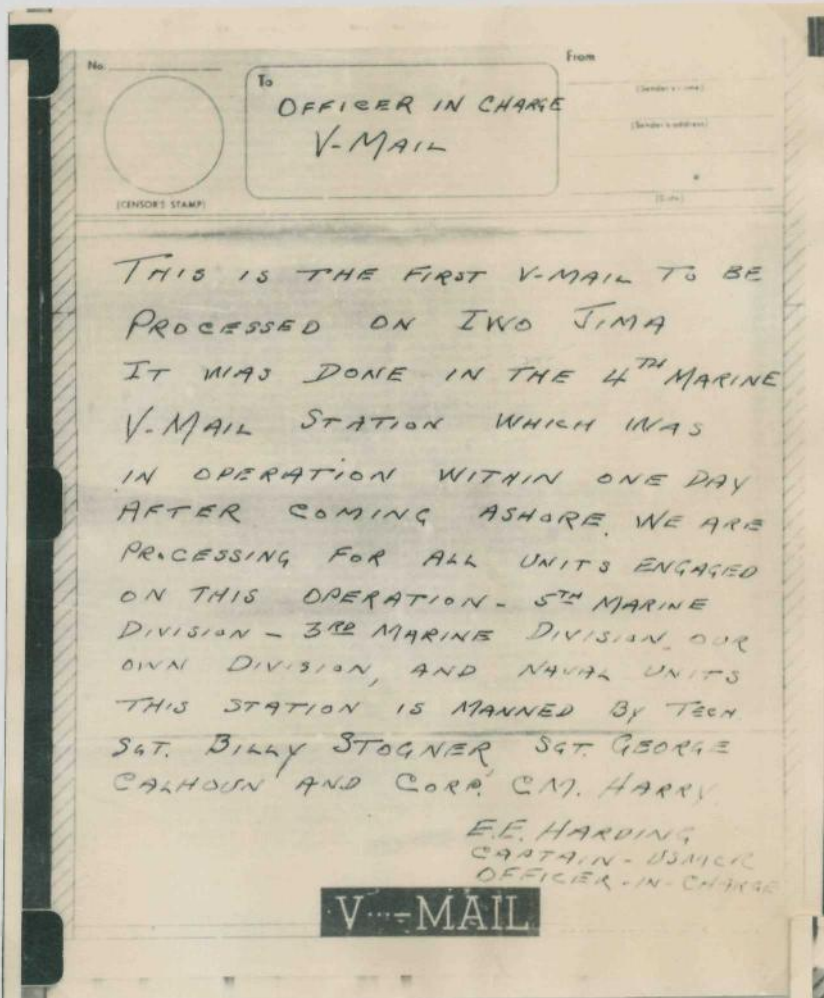 No.
From
To
OFFICER IN CHARGE
V-MAIL
(Sender's name)
(Sender's address)
(Date)
(CENSOR'S STAMP)
THIS IS THE FIRST V-MAIL TO BE
PROCESSED ON IWO JIMA
IT WAS DONE IN THE 4TH MARINE
V-MAIL STATION WHICH WAS
IN OPERATION WITHIN ONE DAY
AFTER COMING ASHORE. WE ARE
PROCESSING FOR ALL UNITS ENGAGED
ON THIS OPERATION - 5TH MARINE
DIVISION - 3RD MARINE DIVISION, OUR
OWN DIVISION, AND NAVAL UNITS
THIS STATION IS MANNED BY TECH.
SGT. BILLY STOGNER, SGT. GEORGE
CALHOUN AND CORP. C.M. HARRY.
E.E. HARDING
CAPTAIN - USMCR
OFFICER-IN-CHARGE
V···-MAIL